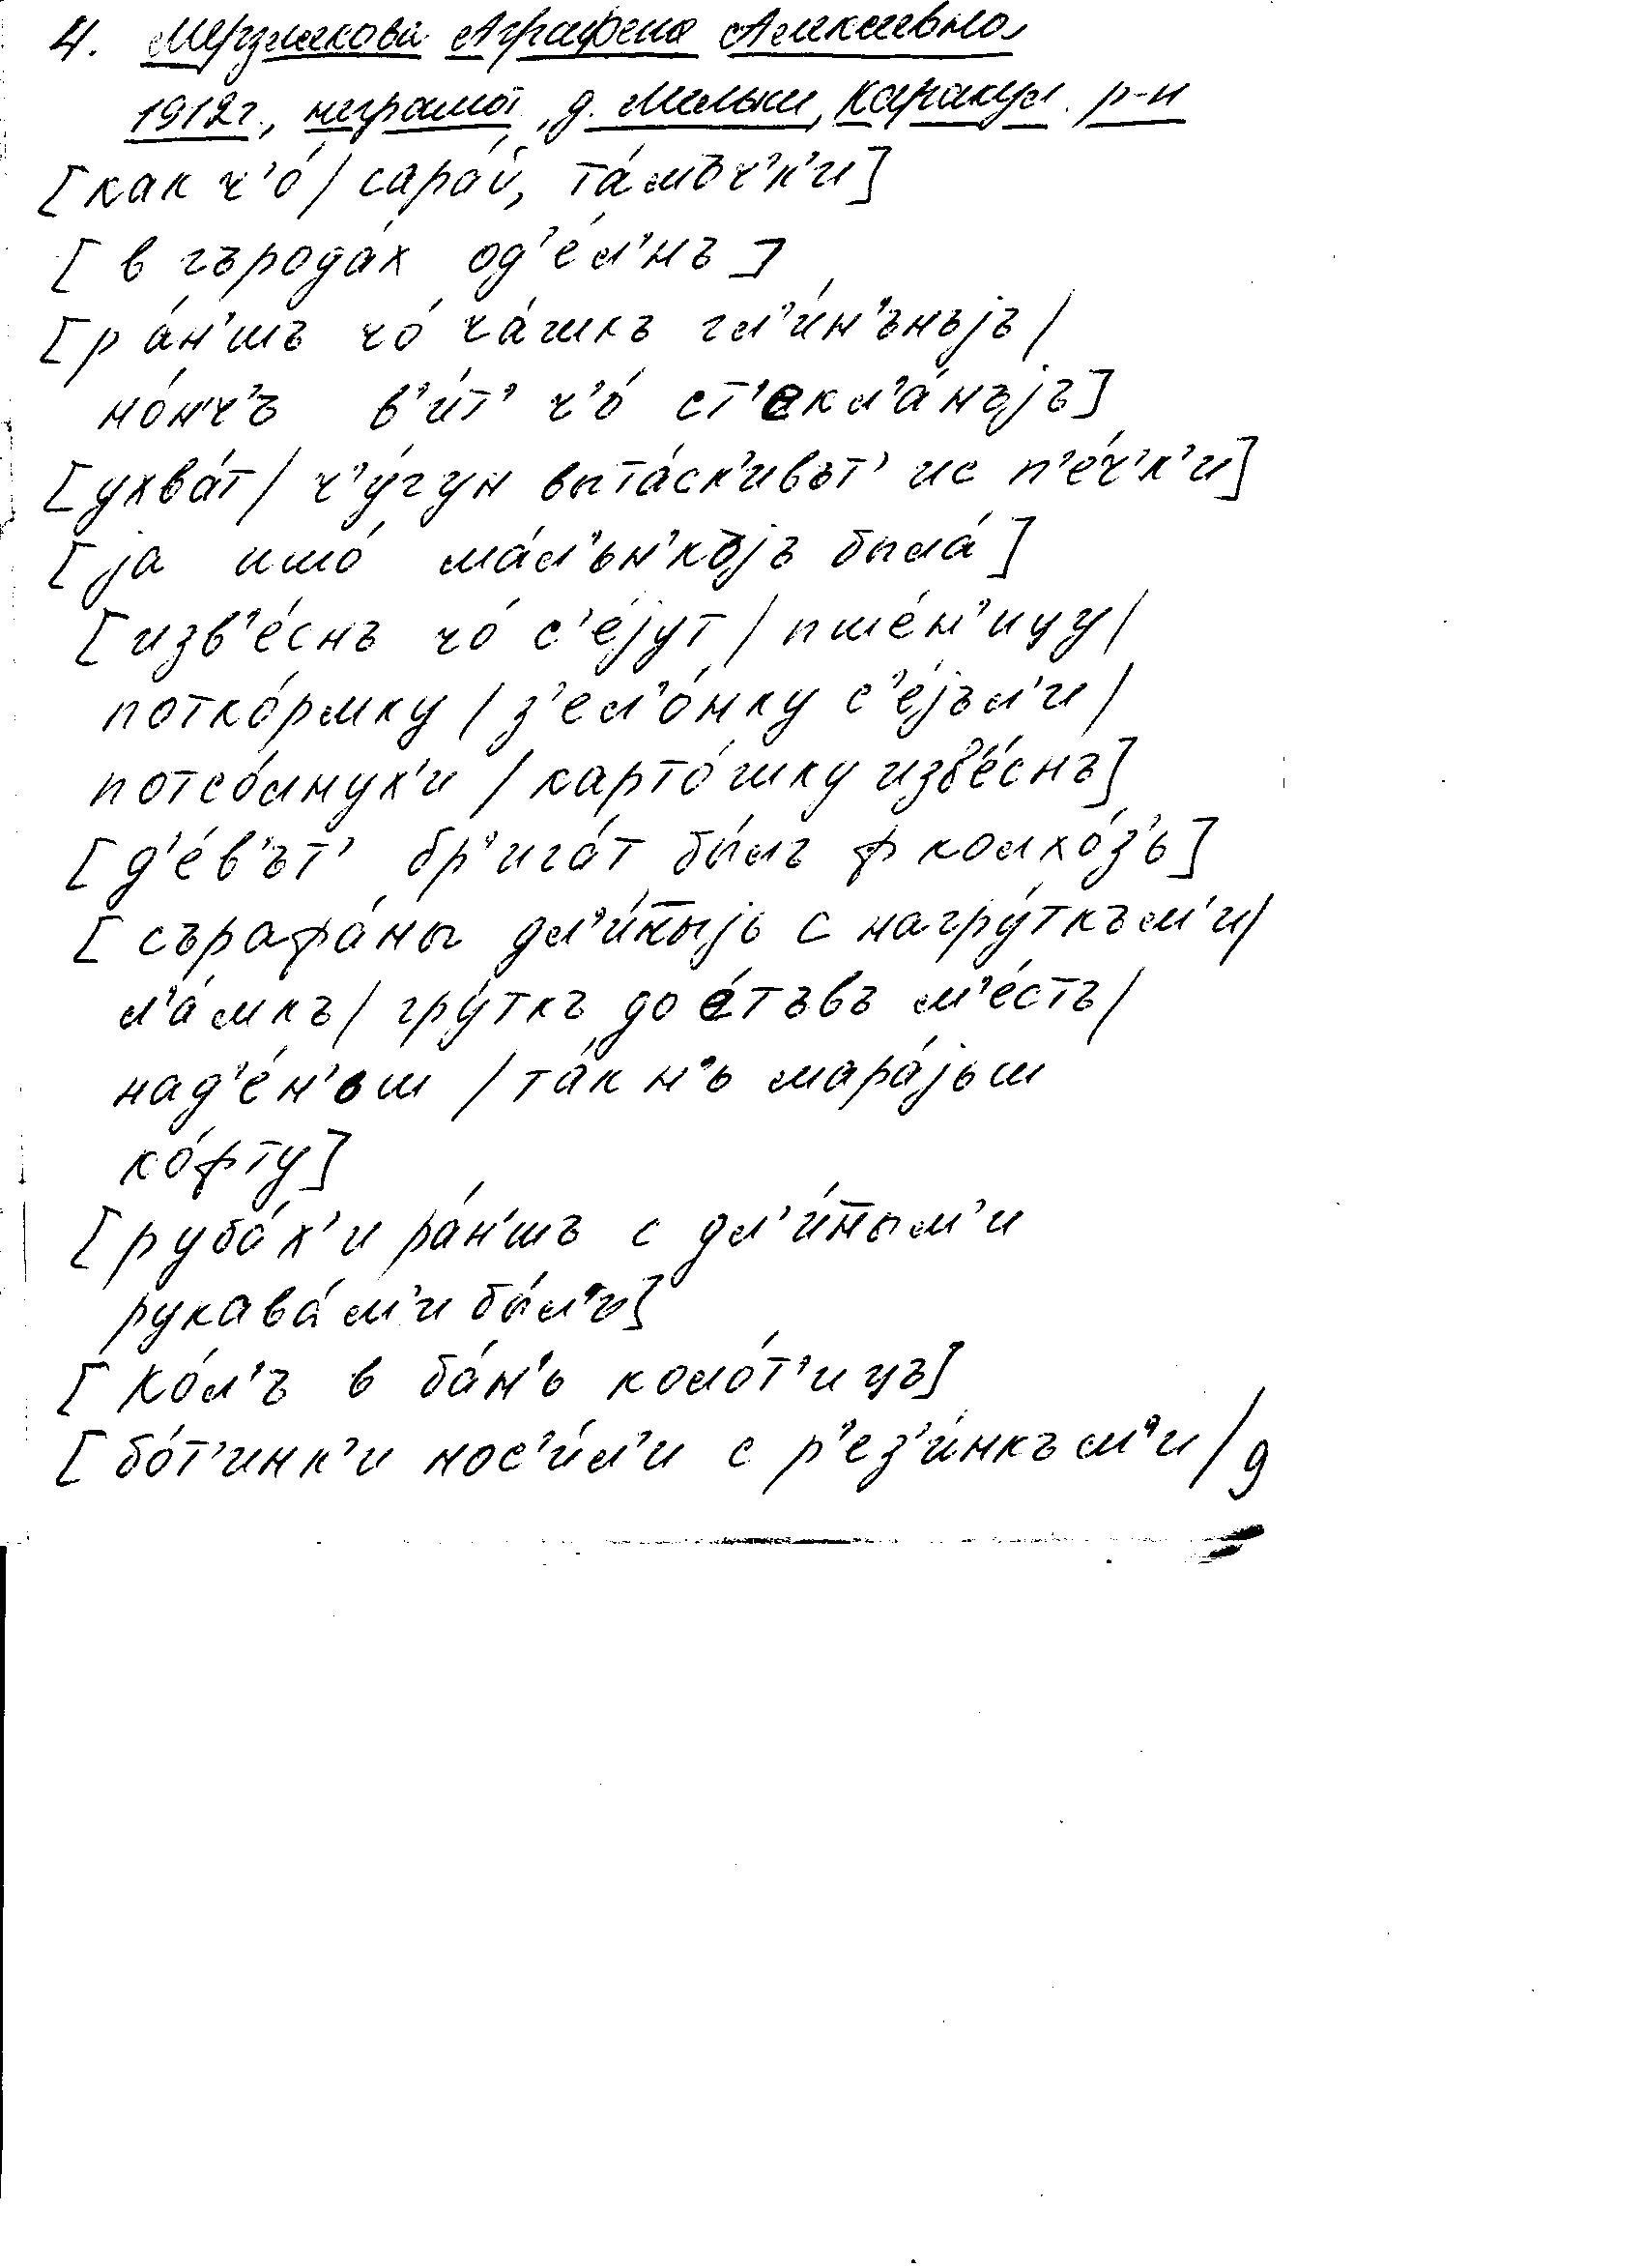 4. Мерзлякова Аграфена Алексеевна
1912г., неграмот, д. Малыки, Каракул. р-н
[как ч’о́/ сара́й, та́мъч’к’и]
[в гърода́х од’е́л’нъ]
[ра́н’шъ чо́ ча́шкъ гл’и́н’ънъjъ/
но́нч’ъ в’и́т’ ч’о́ ст’екл’а́нъjъ]
[ухва́т/ ч’у́гун выта́ск’ивът’ ис п’е́ч’к’и]
[jа ишо́ ма́л’ьн’къjъ была́]
[изв’е́снъ чо́ с’е́jут/ пше́н’ицу/
потко́рмку/ з’ел’о́нку с’е́jъл’и/
потсо́лнух’и/ карто́шку изв’е́снъ]
[д’е́в’ът’ бр’ига́т бы́лъ ф колхо́з’ь]
[сърафа́ны дл’и́н̄ыjь с нагру́ткъм’и/
л’а́мкъ/ гру́ткъ до е́тъвъ м’е́стъ/
над’е́н’ьш /та́к н’ь мара́jьш
ко́фту]
[руба́х’и ра́н’шъ с дл’и́н̄ым’и
рукава́м’и бы́л’ъ]
[ко́л’ъ в ба́н’ь коло́т’ицъ]
[бо́т’инк’и нос’и́л’и с р’ез’и́нкъм’и/ д